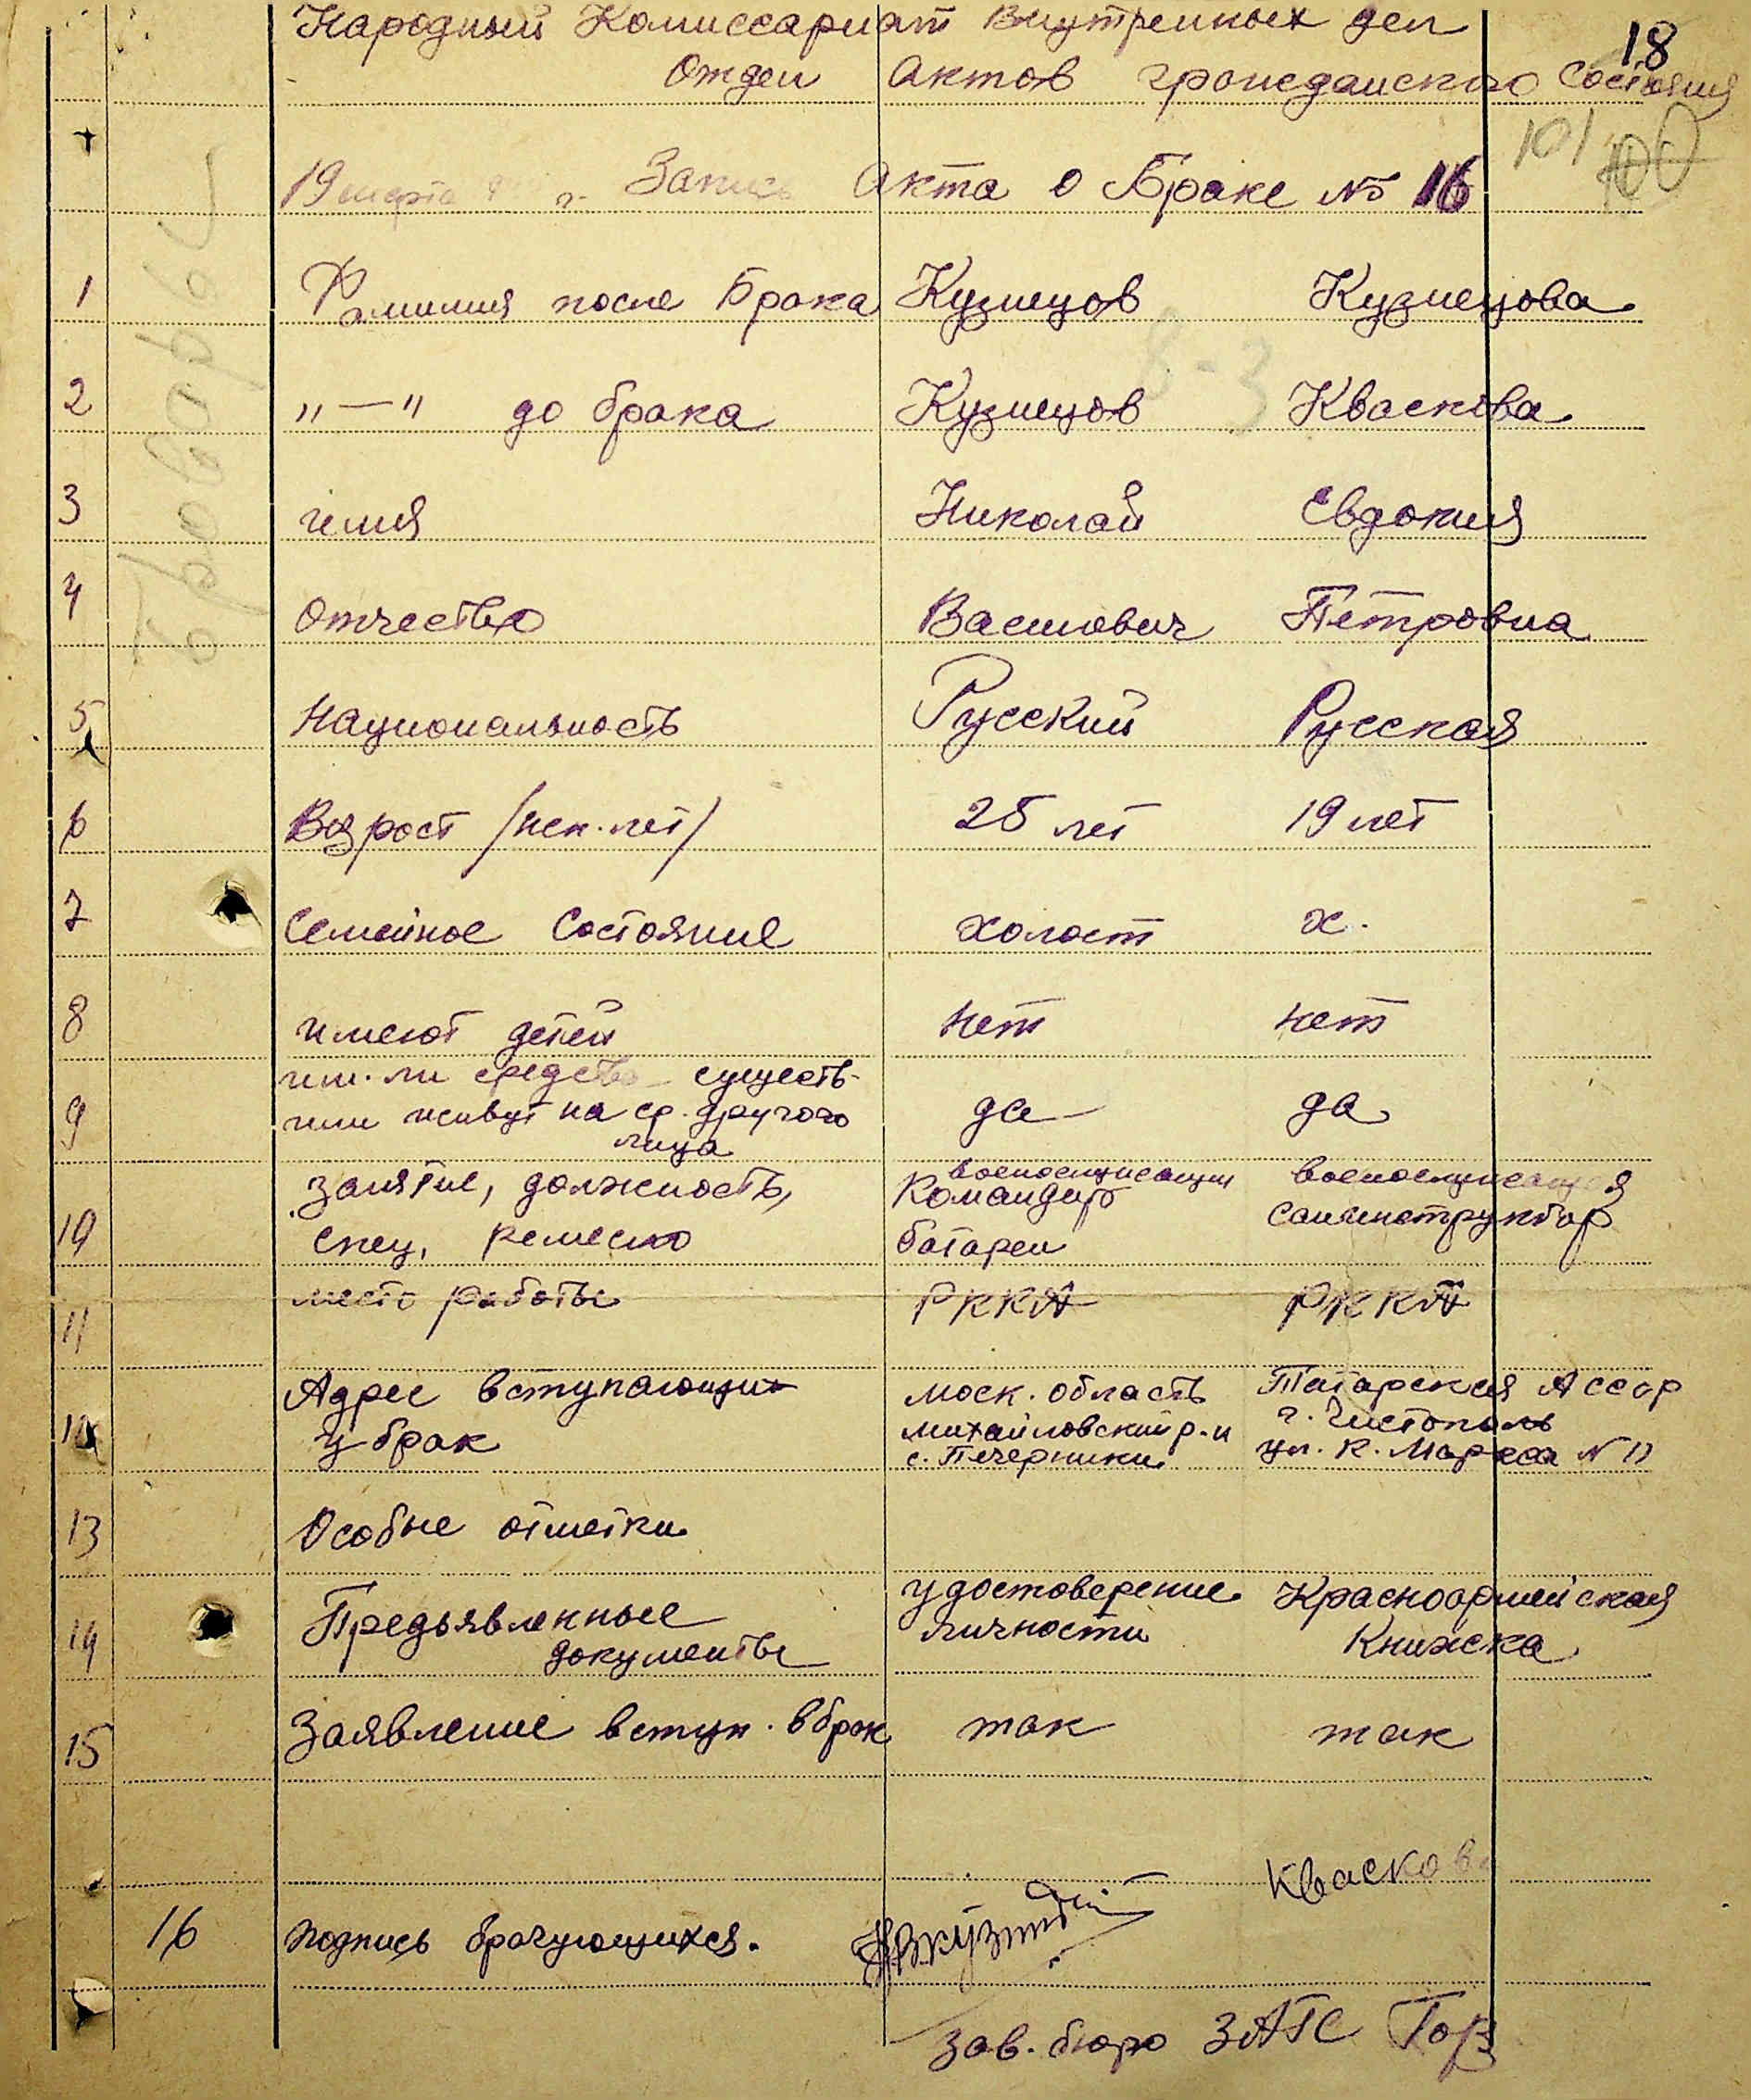 18
Народный Комиссариат Внутренных дел
Отдел Актов гражданского Состояния
101 100
19 марта г. Запись Акта о Браке № 16
1 Фамилия после Брака Кузнецов Кузнецова
2 "—" до брака Кузнецов Кваскова
3 имя Николай Евдокия
4 Отчество Васильевич Петровна
5 Национальность Русский Русская
6 Возрост /исп. лет/ 25 лет 19 лет
7 Семейное Состояние холост х.
8 имеют детей нет нет
9 им. ли средства существ.
или живут на ср. другого да да
лица
10 занятие, должность, военослужащий военослужащая
Командир санинструктор
спец, ремесло батареи
11 место работы РККА РККА
12 Адрес вступающих моск. область Татарская АССР
у брак михайловский р-н г. Чистополь
с. Печерники ул. К. Маркса № 11
13 Особые отметки
14 Предъявленные удостоверение Красноармейская
документы личности Книжка
15 Заявление вступ. в брак так так
Кваскова
16 подпись брачующихся.
Зав. бюро ЗАГС